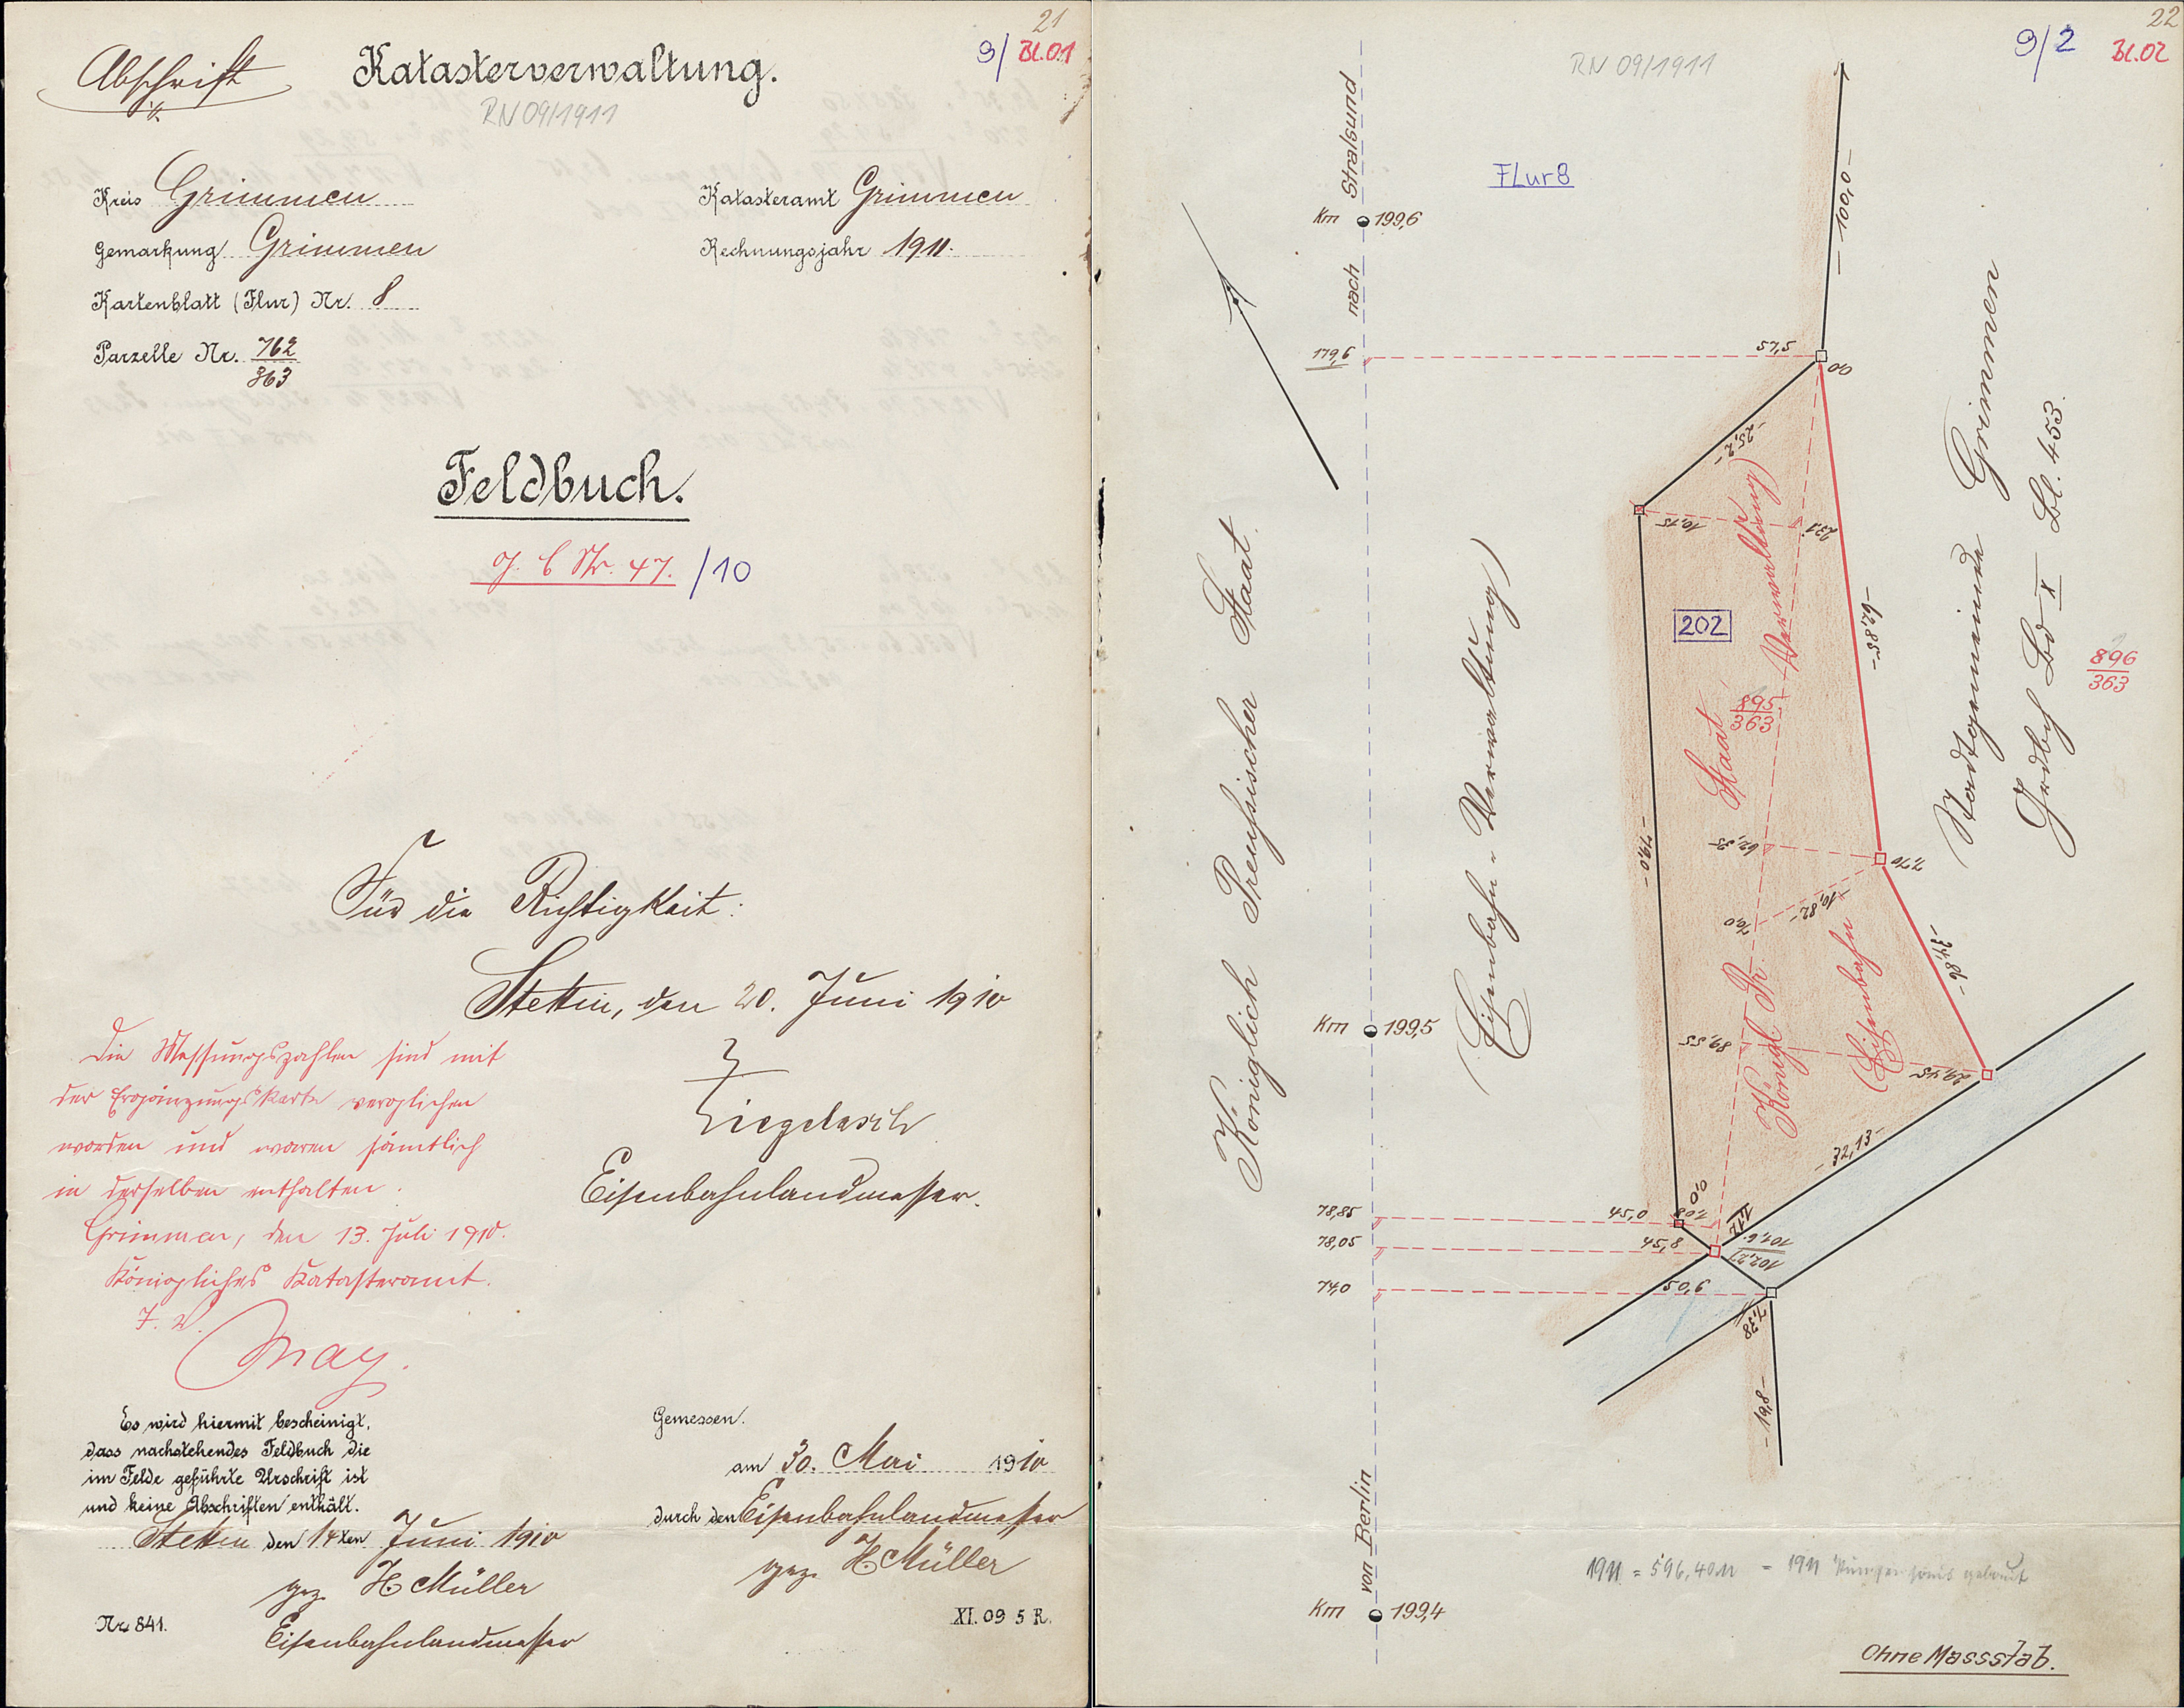 21
9/ Bl.01
Abschrift
Katasterverwaltung.
RN 09/1911
Kreis Grimmen
Katasteramt Grimmen
Gemarkung Grimmen
Rechnungsjahr 1911.
Kartenblatt (Flur) Nr. 8
Parzelle Nr. 762
363
Feldbuch.
J. C Nr. 47. /10
Für die Richtigkeit:
Stettin, den 20. Juni 1910
Ziegelasch
Eisenbahnlandmesser.
Die Messungszahlen sind mit
der Ergänzungskarte verglichen
worden und waren sämtlich
in derselben enthalten.
Grimmen, den 13. Juli 1910.
Königliches Katasteramt.
J. V.
May.
Es wird hiermit bescheinigt,
dass nachstehendes Feldbuch die
im Felde geführte Urschrift ist
und keine Abschriften enthält.
Stettin den 14ten Juni 1910
gez. H. Müller
Eisenbahnlandmesser
Nr. 841.
Gemessen.
am 30. Mai 1910
durch den Eisenbahnlandmesser
gez. H. Müller
XI. 09 5 R.
22
9/2 Bl.02
RN 09/1911
Flur 8
von Berlin nach Stralsund
Km 199,6
179,6
57,5
0,0
-100,0-
-25,2-
10,15
23,1
202
-62,85-
895
363
896
363
-79,0-
62,35
7,70
70,0
-10,82-
-34,86-
Km 199,5
89,55
29,45
-32,13-
Königlich Preussischer Staat.
(Eisenbahn-Verwaltung)
Königl. Pr. Staat
(Eisenbahn Verwaltung)
Stadtgemeinde Grimmen
Grdbch Bd X Bl. 453.
78,85
45,0
1,08
0,0
78,05
45,8
1,14
101,6
102,27
74,0
50,6
7,38
-19,8-
1911 = 596,40 M = 1911
Km 199,4
Ohne Massstab.